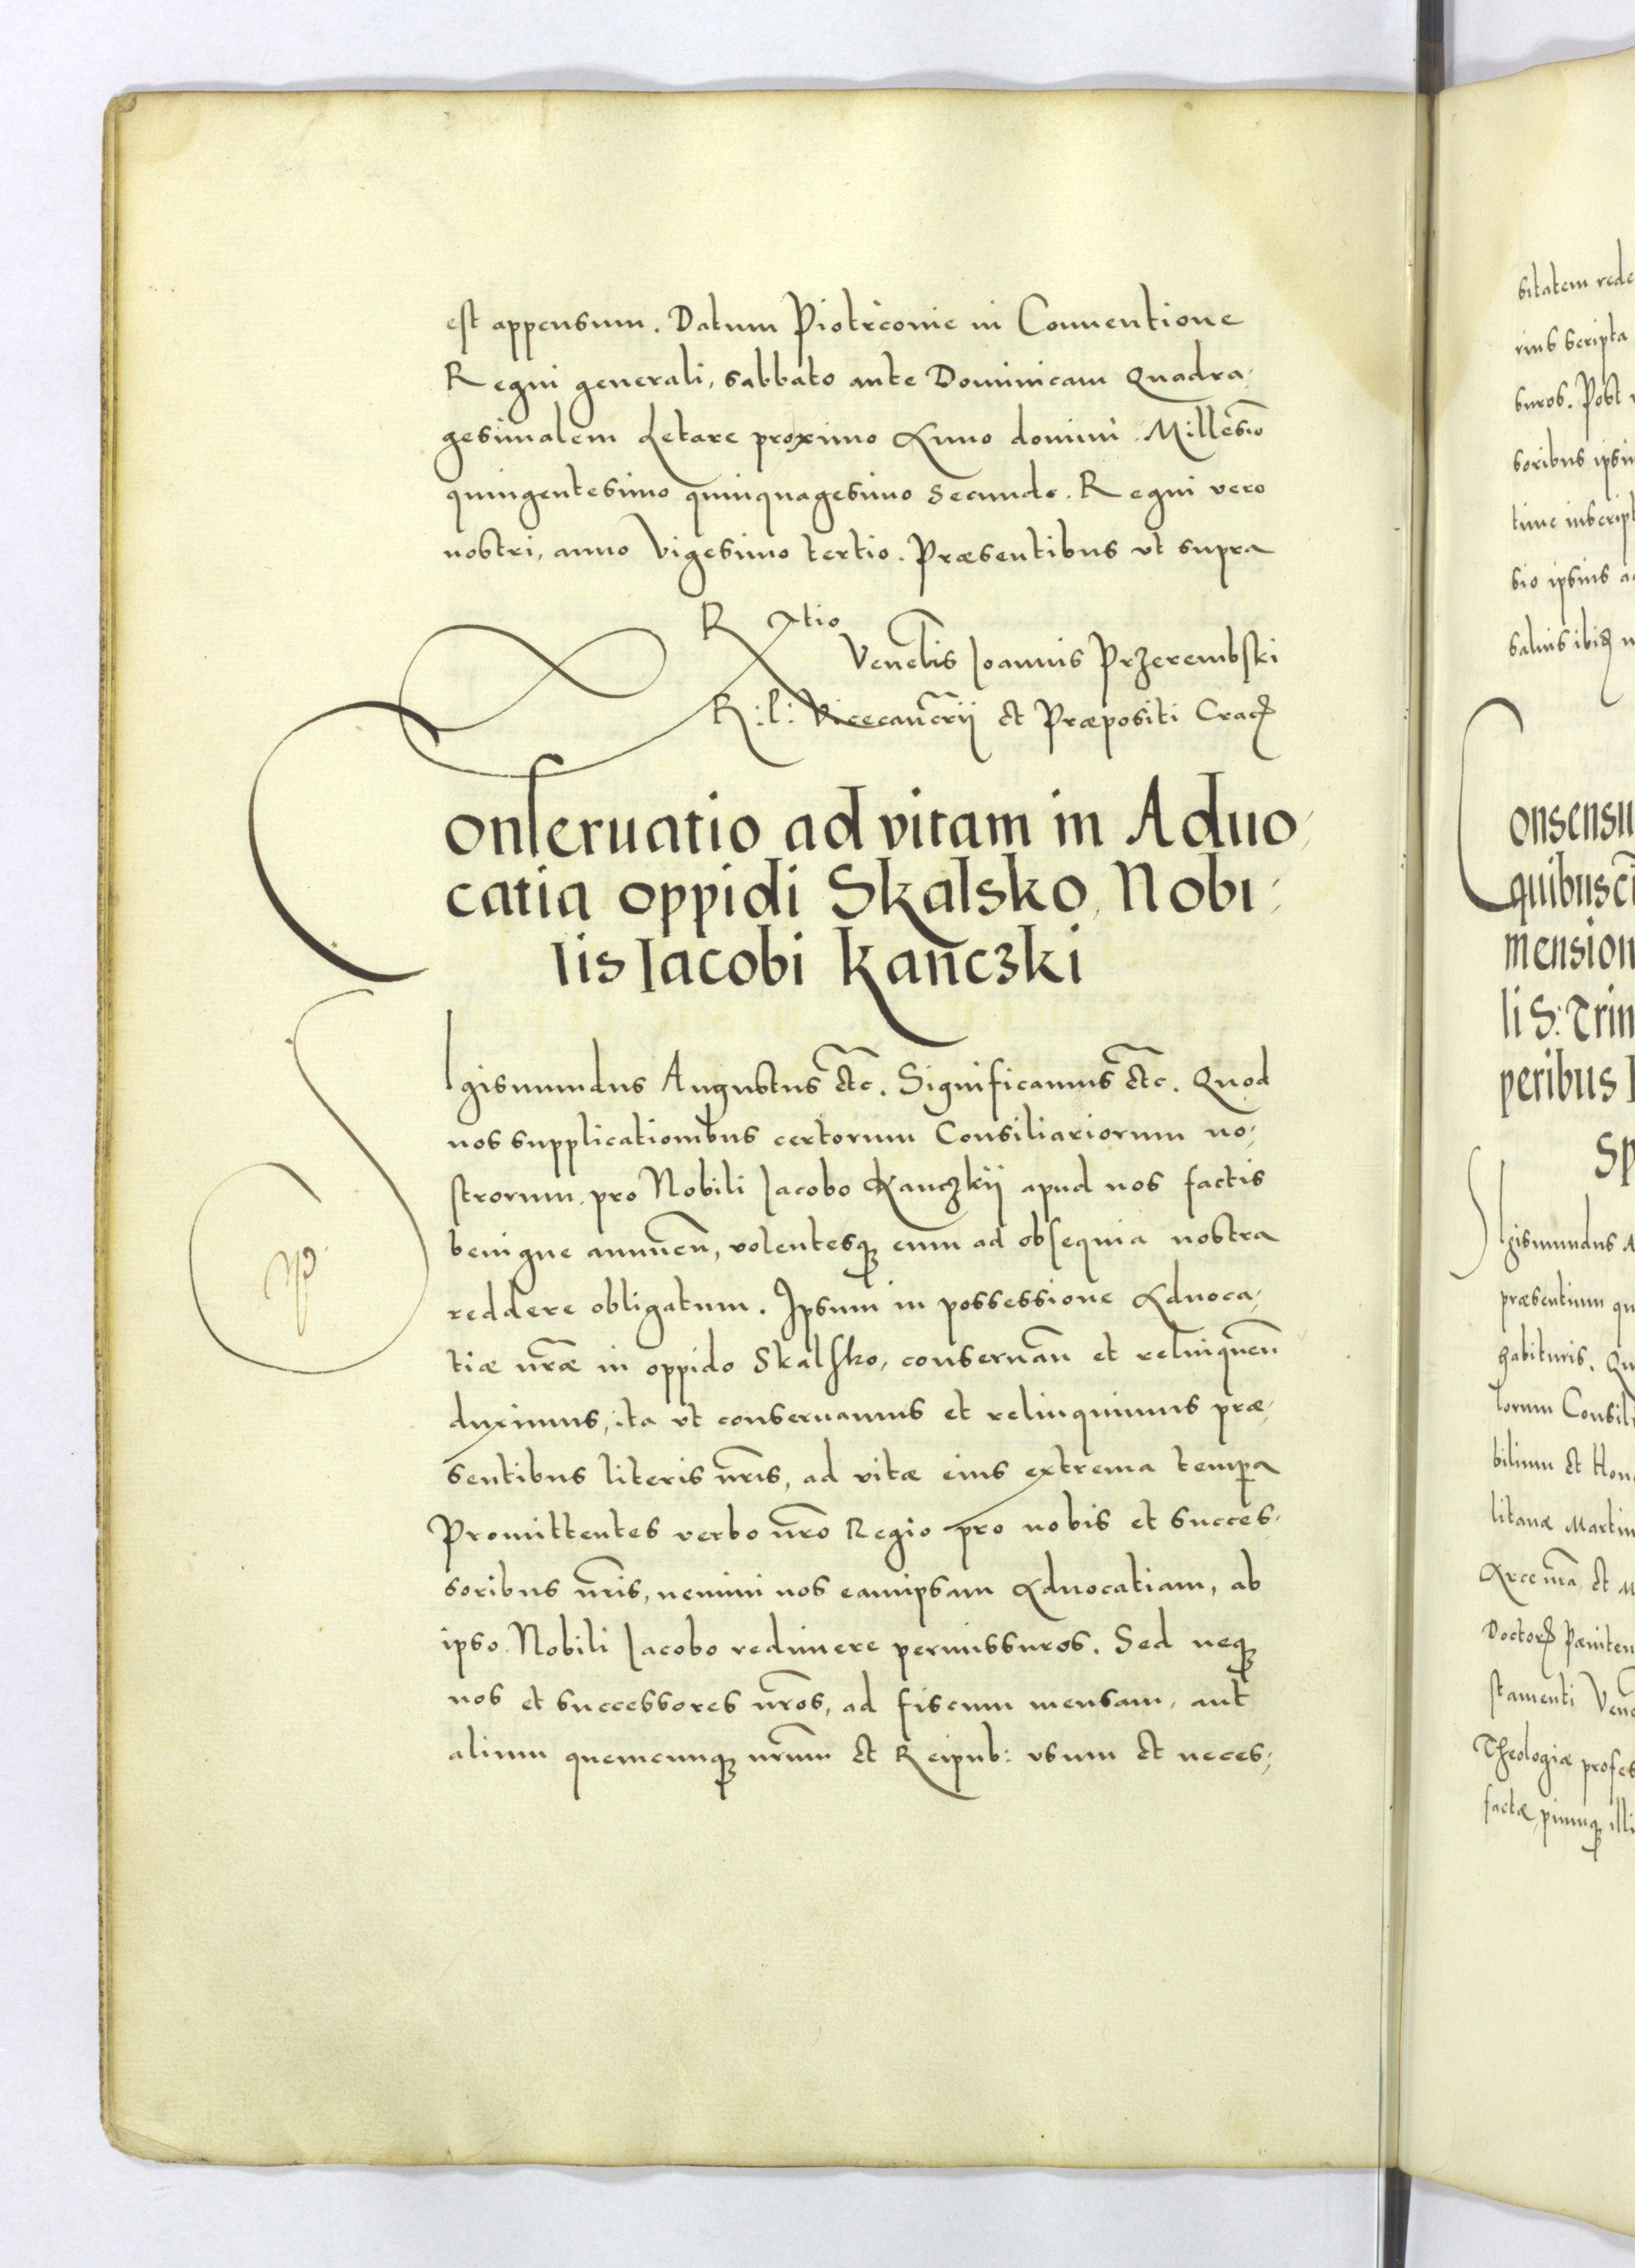 est appensum. Datum Piotrconie in Conuentione
Regni generali, sabbato ante Dominicam Quadra,
gesimalem Letare proximo Anno domini. Millesio
quingentesimo quinquagesimo secundo. Regni vero
nostri, anno Vigesimo tertio. Præsentibus vt supra
R tio
Venelis Joannis Przerembski
R: P: Vicecancrij et Præpositi Crac
Conseruatio ad vitam in Aduo,
catia oppidi Skalsko, Nobi,
lis Jacobi Kanczki
SIgismundus Augustus etc. Significamus etc. Quod
nos supplicationibus certorum Consiliariorum no,
strorum pro Nobili Jacobo Kanczkij apud nos factis
benigne annuen, volentesq eum ad obsequia nostra
reddere obligatum. Ipsum in possessione Aduoca,
tiæ nræ in oppido Skalsko, conseruan et relinquen
duximus, ita vt conseruamus et relinquimus præ,
sentibus literis nris, ad vitæ eius extrema tempa
Promittentes verbo nro Regio pro nobis et succes,
soribus nris, nemini nos eamipsam Aduocatiam, ab
ipso Nobili Jacobo redimere permissuros. Sed neq
nos et successores nros, ad fiscum mensam, aut
alium quemcunq nrum et Reipub: vsum et neces,
sitatem rede
rius scripta
suros. Post
soribus ipsi
time inscript
sio ipsius a
saluis ibi
Consensu
quibusc
mension
li S: Trin
peribus
Sp
SIgismundus A
præsentium qu
habituris. Qu
torum Consil
bilium et Hon
litanæ Martin
Arce nra et M
Doctor Pæniten
stamenti Ven
Theologiæ profes
factæ, piumq illi